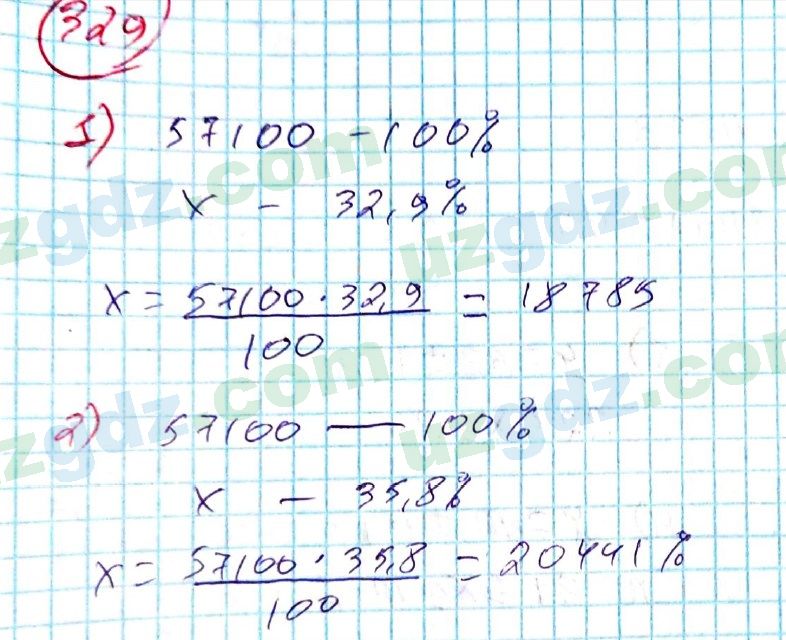 329
1) 57100 - 100%
x - 32,9%
x = 57100 · 32,9 / 100 = 18785
2) 57100 — 100%
x - 35,8%
x = 57100 · 35,8 / 100 = 20441%
uzgdz.com
uzgdz.com
uzgdz.com
uzgdz.com